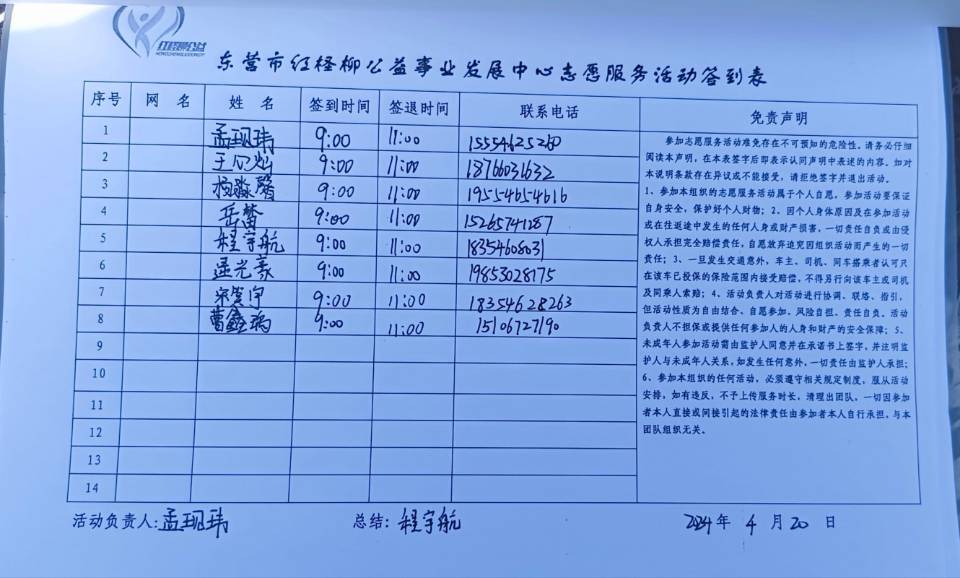 红柽柳公益
东营市红柽柳公益事业发展中心志愿服务活动签到表
序号 网 名 姓 名 签到时间 签退时间 联系电话 免责声明
1 孟现玮 9:00 11:00 15554625260
2 9:00 11:00 18766031632
3 杨淼馨 9:00 11:00 19554654616
4 岳蕾 9:00 11:00 15265741287
5 程宇航 9:00 11:00 18354608031
6 孟光豪 9:00 11:00 19853028175
7 宋 宇 9:00 11:00 18354628263
8 曹鑫瑀 9:00 11:00 15106727190
9
10
11
12
13
14
参加志愿服务活动难免存在不可预知的危险性。请务必仔细
阅读本声明，在本表签字后即表示认同声明中表述的内容。如对
本说明条款存在异议或不能接受，请拒绝签字并退出活动。
1、参加本组织的志愿服务活动属于个人自愿，参加活动要保证
自身安全，保护好个人财物；2、因个人身体原因及在参加活动
或在往返途中发生的任何人身或财产损害，一切责任自负或由侵
权人承担完全赔偿责任，自愿放弃追究因组织活动而产生的一切
责任；3、一旦发生交通意外，车主、司机、同车搭乘者认可只
在该车已投保的保险范围内接受赔偿，不得另行向该车主或司机
及同乘人索赔；4、活动负责人对活动进行协调、联络、指引，
但活动性质为自由结合、自愿参加、风险自担、责任自负。活动
负责人不担保或提供任何参加人的人身和财产的安全保障；5、
未成年人参加活动需由监护人同意并在承诺书上签字，并注明监
护人与未成年人关系，如发生任何意外，一切责任由监护人承担；
6、参加本组织的任何活动，必须遵守相关规定制度，服从活动
安排，如有违反，不予上传服务时长，清理出团队。一切因参加
者本人直接或间接引起的法律责任由参加者本人自行承担，与本
团队组织无关。
活动负责人:孟现玮 总结: 程宇航 2024年 4 月 20 日